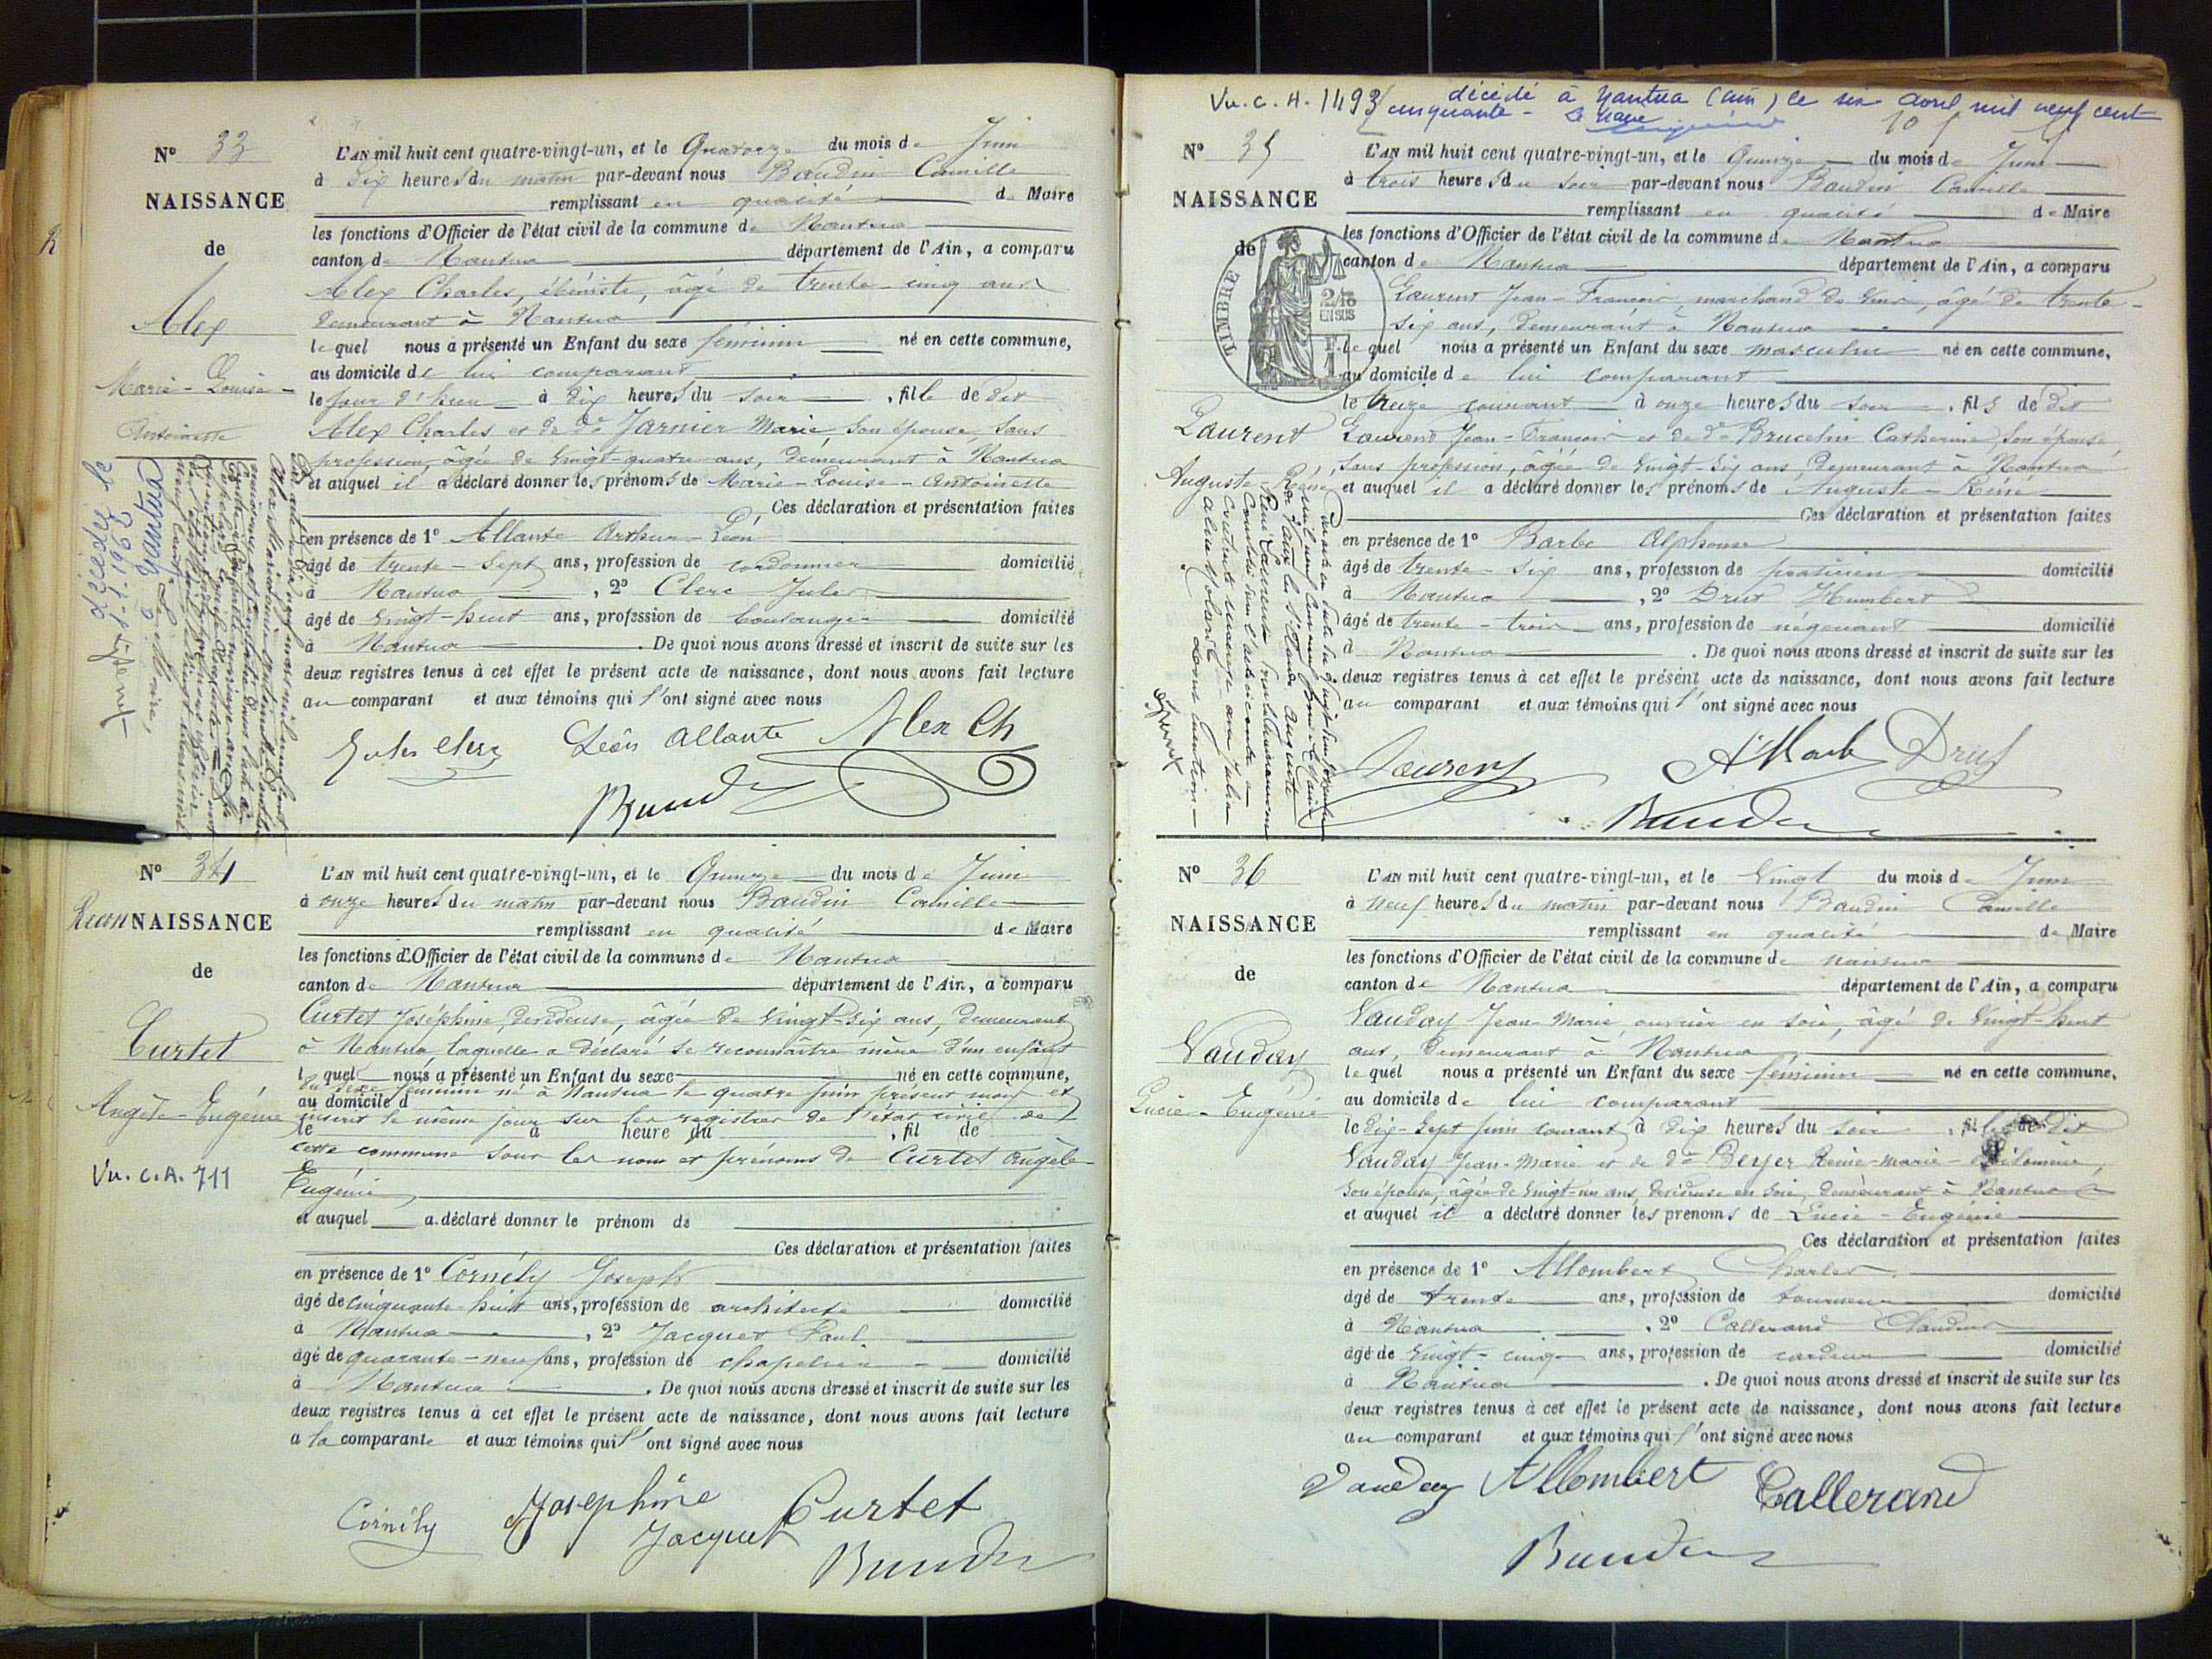 N° 33
NAISSANCE
de
Alex
Marie-Louise-
Antoinette
décédée le
1-1-1962
à Nantua
Le Maire,
L'AN mil huit cent quatre-vingt-un, et le Quatorze du mois de Juin
à dix heures du matin par-devant nous Baudin Camille
remplissant en qualité de Maire
les fonctions d'Officier de l'état civil de la commune de Nantua
canton de Nantua département de l'Ain, a comparu
Alex Charles, ébéniste, âgé de trente-cinq ans
demeurant à Nantua
lequel nous a présenté un Enfant du sexe féminin né en cette commune,
au domicile de lui comparant
le jour d'hier à dix heures du soir, fille de dit
Alex Charles et de De Jarnier Marie, son épouse, sans
profession, âgée de vingt-quatre ans, demeurant à Nantua
et auquel il a déclaré donner les prénoms de Marie-Louise-Antoinette
Ces déclaration et présentation faites
en présence de 1° Allante Arthur-Léon
âgé de trente-sept ans, profession de cordonnier domicilié
à Nantua, 2° Clerc Jules
âgé de vingt-huit ans, profession de boulanger domicilié
à Nantua. De quoi nous avons dressé et inscrit de suite sur les
deux registres tenus à cet effet le présent acte de naissance, dont nous avons fait lecture
au comparant et aux témoins qui l'ont signé avec nous
Jules Clerc Léon Allante Alex Ch
Baudin
N° 34
Reconnaissance
de
Curtet
Angèle-Eugénie
Vu. C.A. 711
L'AN mil huit cent quatre-vingt-un, et le Quinze du mois de Juin
à onze heures du matin par-devant nous Baudin Camille
remplissant en qualité de Maire
les fonctions d'Officier de l'état civil de la commune de Nantua
canton de Nantua département de l'Ain, a comparu
Curtet Joséphine, dévideuse, âgée de vingt-six ans, demeurant
à Nantua, laquelle a déclaré se reconnaître mère d'un enfant
l quel nous a présenté un Enfant du sexe né en cette commune,
du sexe féminin né à Nantua le quatre juin présent mois et
au domicile d
inscrit le même jour sur les registres de l'état civil de
le à heure du , fil de
cette commune sous les nom et prénoms de Curtet Angèle-
Eugénie
et auquel a déclaré donner le prénom de
Ces déclaration et présentation faites
en présence de 1° Cornély Joseph
âgé de cinquante-huit ans, profession de architecte domicilié
à Nantua, 2° Jacquet Paul
âgé de quarante-neuf ans, profession de chapelier domicilié
à Nantua. De quoi nous avons dressé et inscrit de suite sur les
deux registres tenus à cet effet le présent acte de naissance, dont nous avons fait lecture
a la comparante et aux témoins qui l'ont signé avec nous
Cornély Josephine Curtet
Jacquet
Baudin
Vu. C. A. 1493 décédé à Nantua (Ain) le six avril mil neuf cent
cinquante - Le Maire
N° 35
NAISSANCE
de
TIMBRE
2/10
EN SUS
Laurent
Auguste-Réné
L'AN mil huit cent quatre-vingt-un, et le Quinze du mois de Juin
à trois heures du soir par-devant nous Baudin Camille
remplissant en qualité de Maire
les fonctions d'Officier de l'état civil de la commune de Nantua
canton de Nantua département de l'Ain, a comparu
Laurent Jean-François, marchand de vins, âgé de trente-
six ans, demeurant à Nantua
lequel nous a présenté un Enfant du sexe masculin né en cette commune,
au domicile de lui comparant
le treize courant à onze heures du soir, fils de dit
Laurent Jean-François et de De Brucelin Catherine, son épouse,
sans profession, âgée de vingt-six ans, demeurant à Nantua
et auquel il a déclaré donner les prénoms de Auguste-Réné
Ces déclaration et présentation faites
en présence de 1° Barbe Alphonse
âgé de trente-six ans, profession de praticien domicilié
à Nantua, 2° Drut Humbert
âgé de trente-trois ans, profession de négociant domicilié
à Nantua. De quoi nous avons dressé et inscrit de suite sur les
deux registres tenus à cet effet le présent acte de naissance, dont nous avons fait lecture
au comparant et aux témoins qui l'ont signé avec nous
Laurent Drut
Baudin
N° 36
NAISSANCE
de
Vauday
Lucie-Eugénie
L'AN mil huit cent quatre-vingt-un, et le Vingt du mois de Juin
à neuf heures du matin par-devant nous Baudin Camille
remplissant en qualité de Maire
les fonctions d'Officier de l'état civil de la commune de Nantua
canton de Nantua département de l'Ain, a comparu
Vauday Jean-Marie, ouvrier en soie, âgé de vingt-huit
ans, demeurant à Nantua
lequel nous a présenté un Enfant du sexe féminin né en cette commune,
au domicile de lui comparant
le dix-sept juin courant à dix heures du soir, fille de dit
Vauday Jean-Marie et de De Beyer Reine-Marie-
son épouse, âgée de vingt-un ans, dévideuse en soie, demeurant à Nantua
et auquel il a déclaré donner les prénoms de Lucie-Eugénie
Ces déclaration et présentation faites
en présence de 1° Allombert Charles
âgé de trente ans, profession de tourneur domicilié
à Nantua, 2° Callerand Claudius
âgé de vingt-cinq ans, profession de cardeur domicilié
à Nantua. De quoi nous avons dressé et inscrit de suite sur les
deux registres tenus à cet effet le présent acte de naissance, dont nous avons fait lecture
au comparant et aux témoins qui l'ont signé avec nous
Vauday Allombert Callerand
Baudin